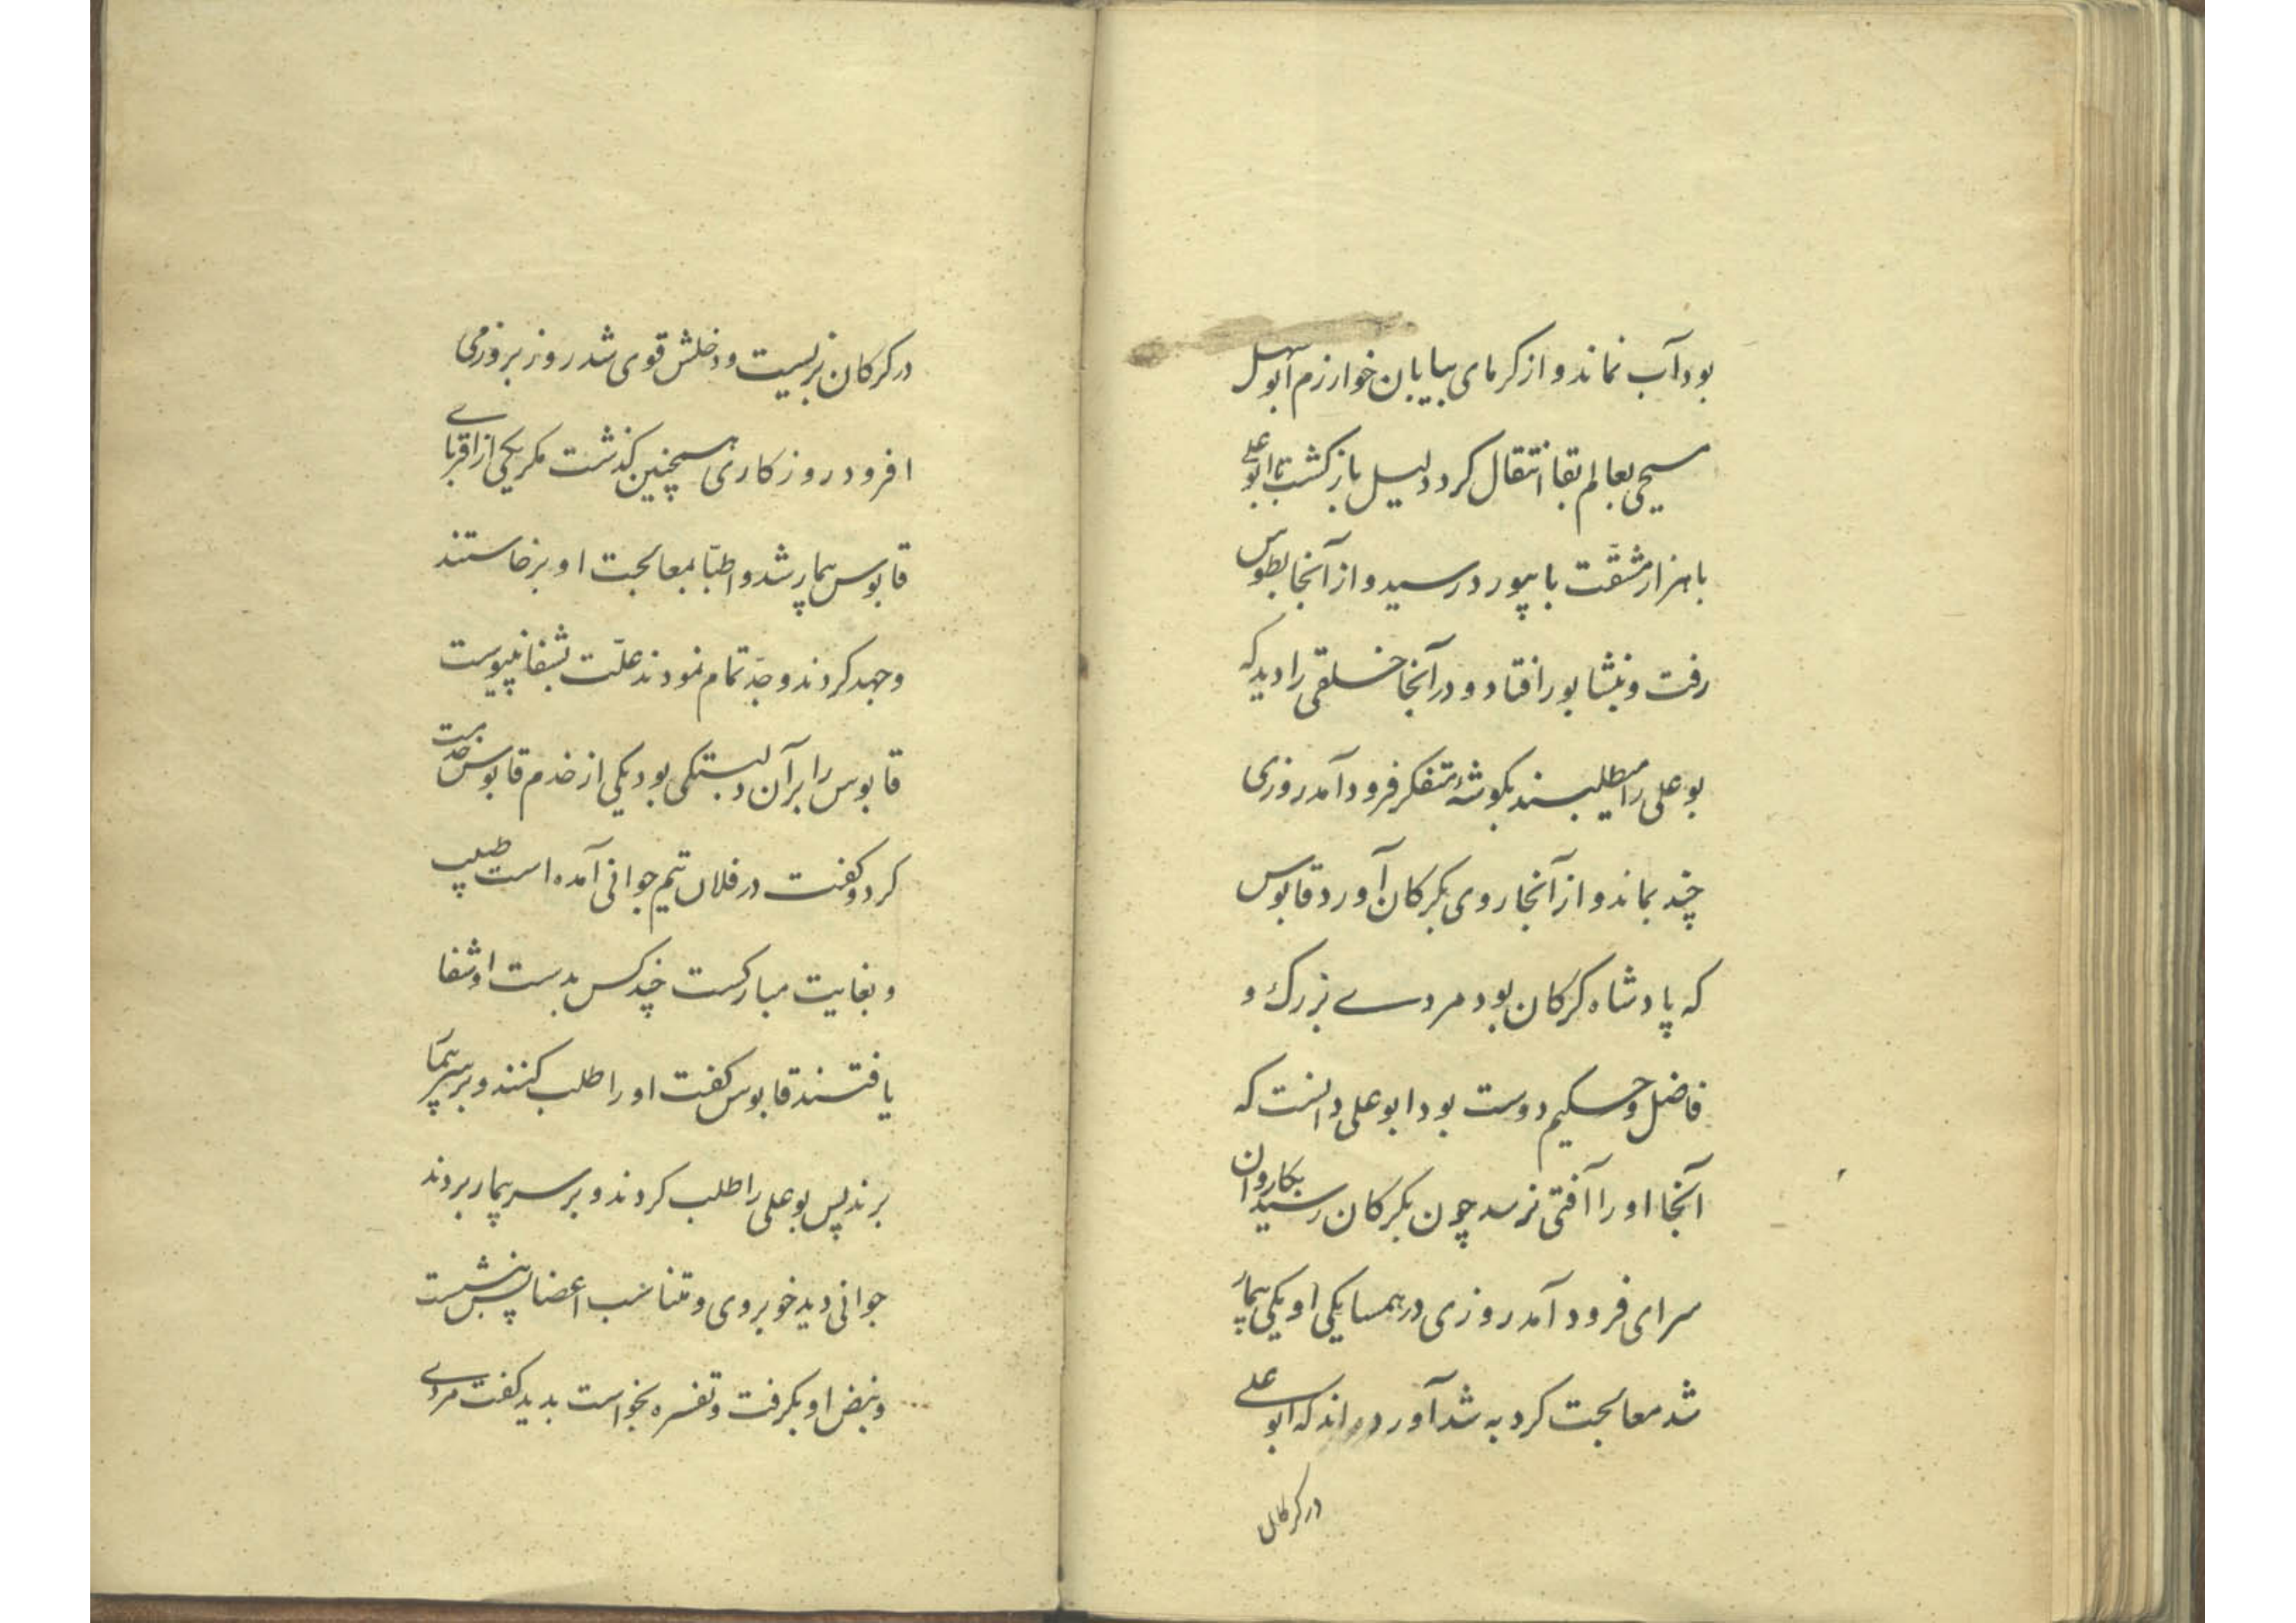 بود آب نماند و از کرمای بیابان خوارزم ابوسهل
مسیحی بعالم بقا انتقال کرد و دلیل باز کشت تا ابوعلی
با هزار مشقّت با بیورد رسید و از آنجا بطوس
رفت و بنشابور افتاد و در آنجا خلقی را دید که
بوعلی را میطلبیدند بکوشهٔ متفکر فرود آمد روزی
چند بماند و از آنجا روی بکرکان آورد قابوس
که پادشاه کرکان بود مردے بزرک و
فاضل و حکیم دوست بود ابوعلی دانست که
آنجا او را آفتی نرسد چون بکرکان رسید بکاروان
سرای فرود آمد روزی در همسایکی او یکی بیمار
شد معالجت کرد به شد آورده اند که ابوعلی
در کرکان
در کرکان بزیست و دخلش قوی شد روز بروز می
افزود روزکاری همچنین کذشت مکر یکی از اقربای
قابوس بیمار شد و اطبّا بمعالجت او برخاستند
و جهد کردند و جدّ تمام نمودند علّت بشفا نپیوست
قابوس را بر آن دلبستکی بود یکی از خدم قابوس خدمت
کرد و کفت در فلان تیم جوانی آمده است طبیب
و بغایت مبارکست چند کس بدست او شفا
یافتند قابوس کفت او را طلب کنند و بر سر بیمار
برند پس بوعلی را طلب کردند و بر سر بیمار بردند
جوانی دید خوبروی و متناسب اعضا پس بنشست
و نبض او بکرفت و تفسره بخواست بدید کفت مردے